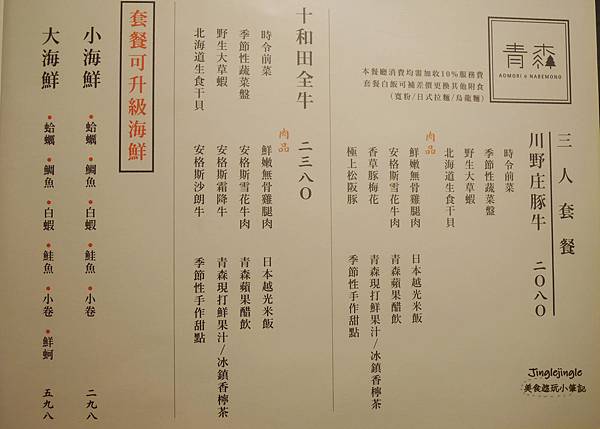 青森
AOMORI e NABEMONO
本餐廳消費均需加收10%服務費
套餐白飯可補差價更換其他附食
(寬粉/日式拉麵/烏龍麵)
三人套餐
川野庄豚牛 二〇八〇
時令前菜
季節性蔬菜盤
野生大草蝦
北海道生食干貝
肉品
鮮嫩無骨雞腿肉
安格斯雪花牛肉
香草豚梅花
極上松阪豚
日本越光米飯
青森蘋果醋飲
青森現打鮮果汁/冰鎮香檸茶
季節性手作甜點
十和田全牛 二三八〇
時令前菜
季節性蔬菜盤
野生大草蝦
北海道生食干貝
肉品
鮮嫩無骨雞腿肉
安格斯雪花牛肉
安格斯霜降牛
安格斯沙朗牛
日本越光米飯
青森蘋果醋飲
青森現打鮮果汁/冰鎮香檸茶
季節性手作甜點
套餐可升級海鮮
小海鮮 •蛤蠣 •鯛魚 •白蝦 •鮭魚 •小卷 二九八
大海鮮 •蛤蠣 •鯛魚 •白蝦 •鮭魚 •小卷 •鮮蚵 五九八
Jinglejingle
美食遊玩小筆記